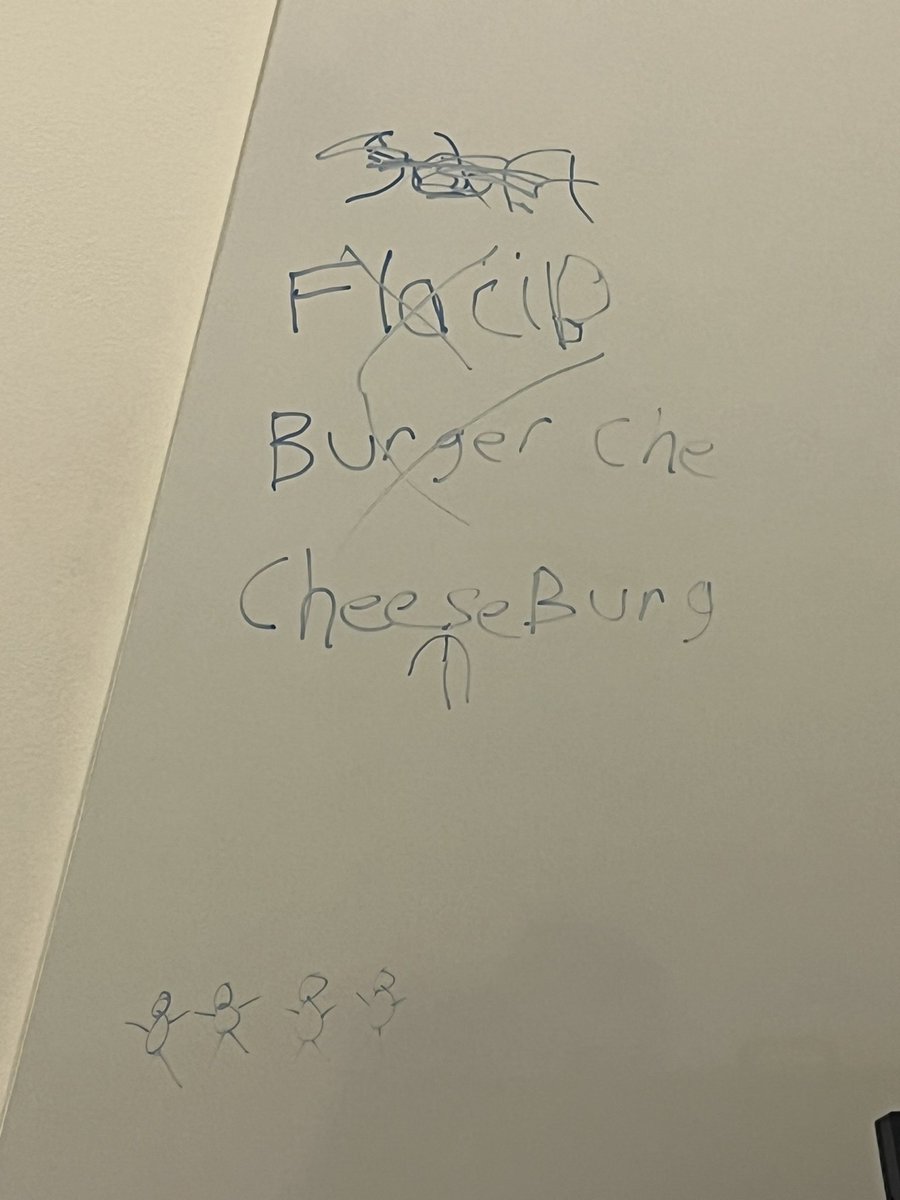 Flacib
Burger Che
CheeseBurg